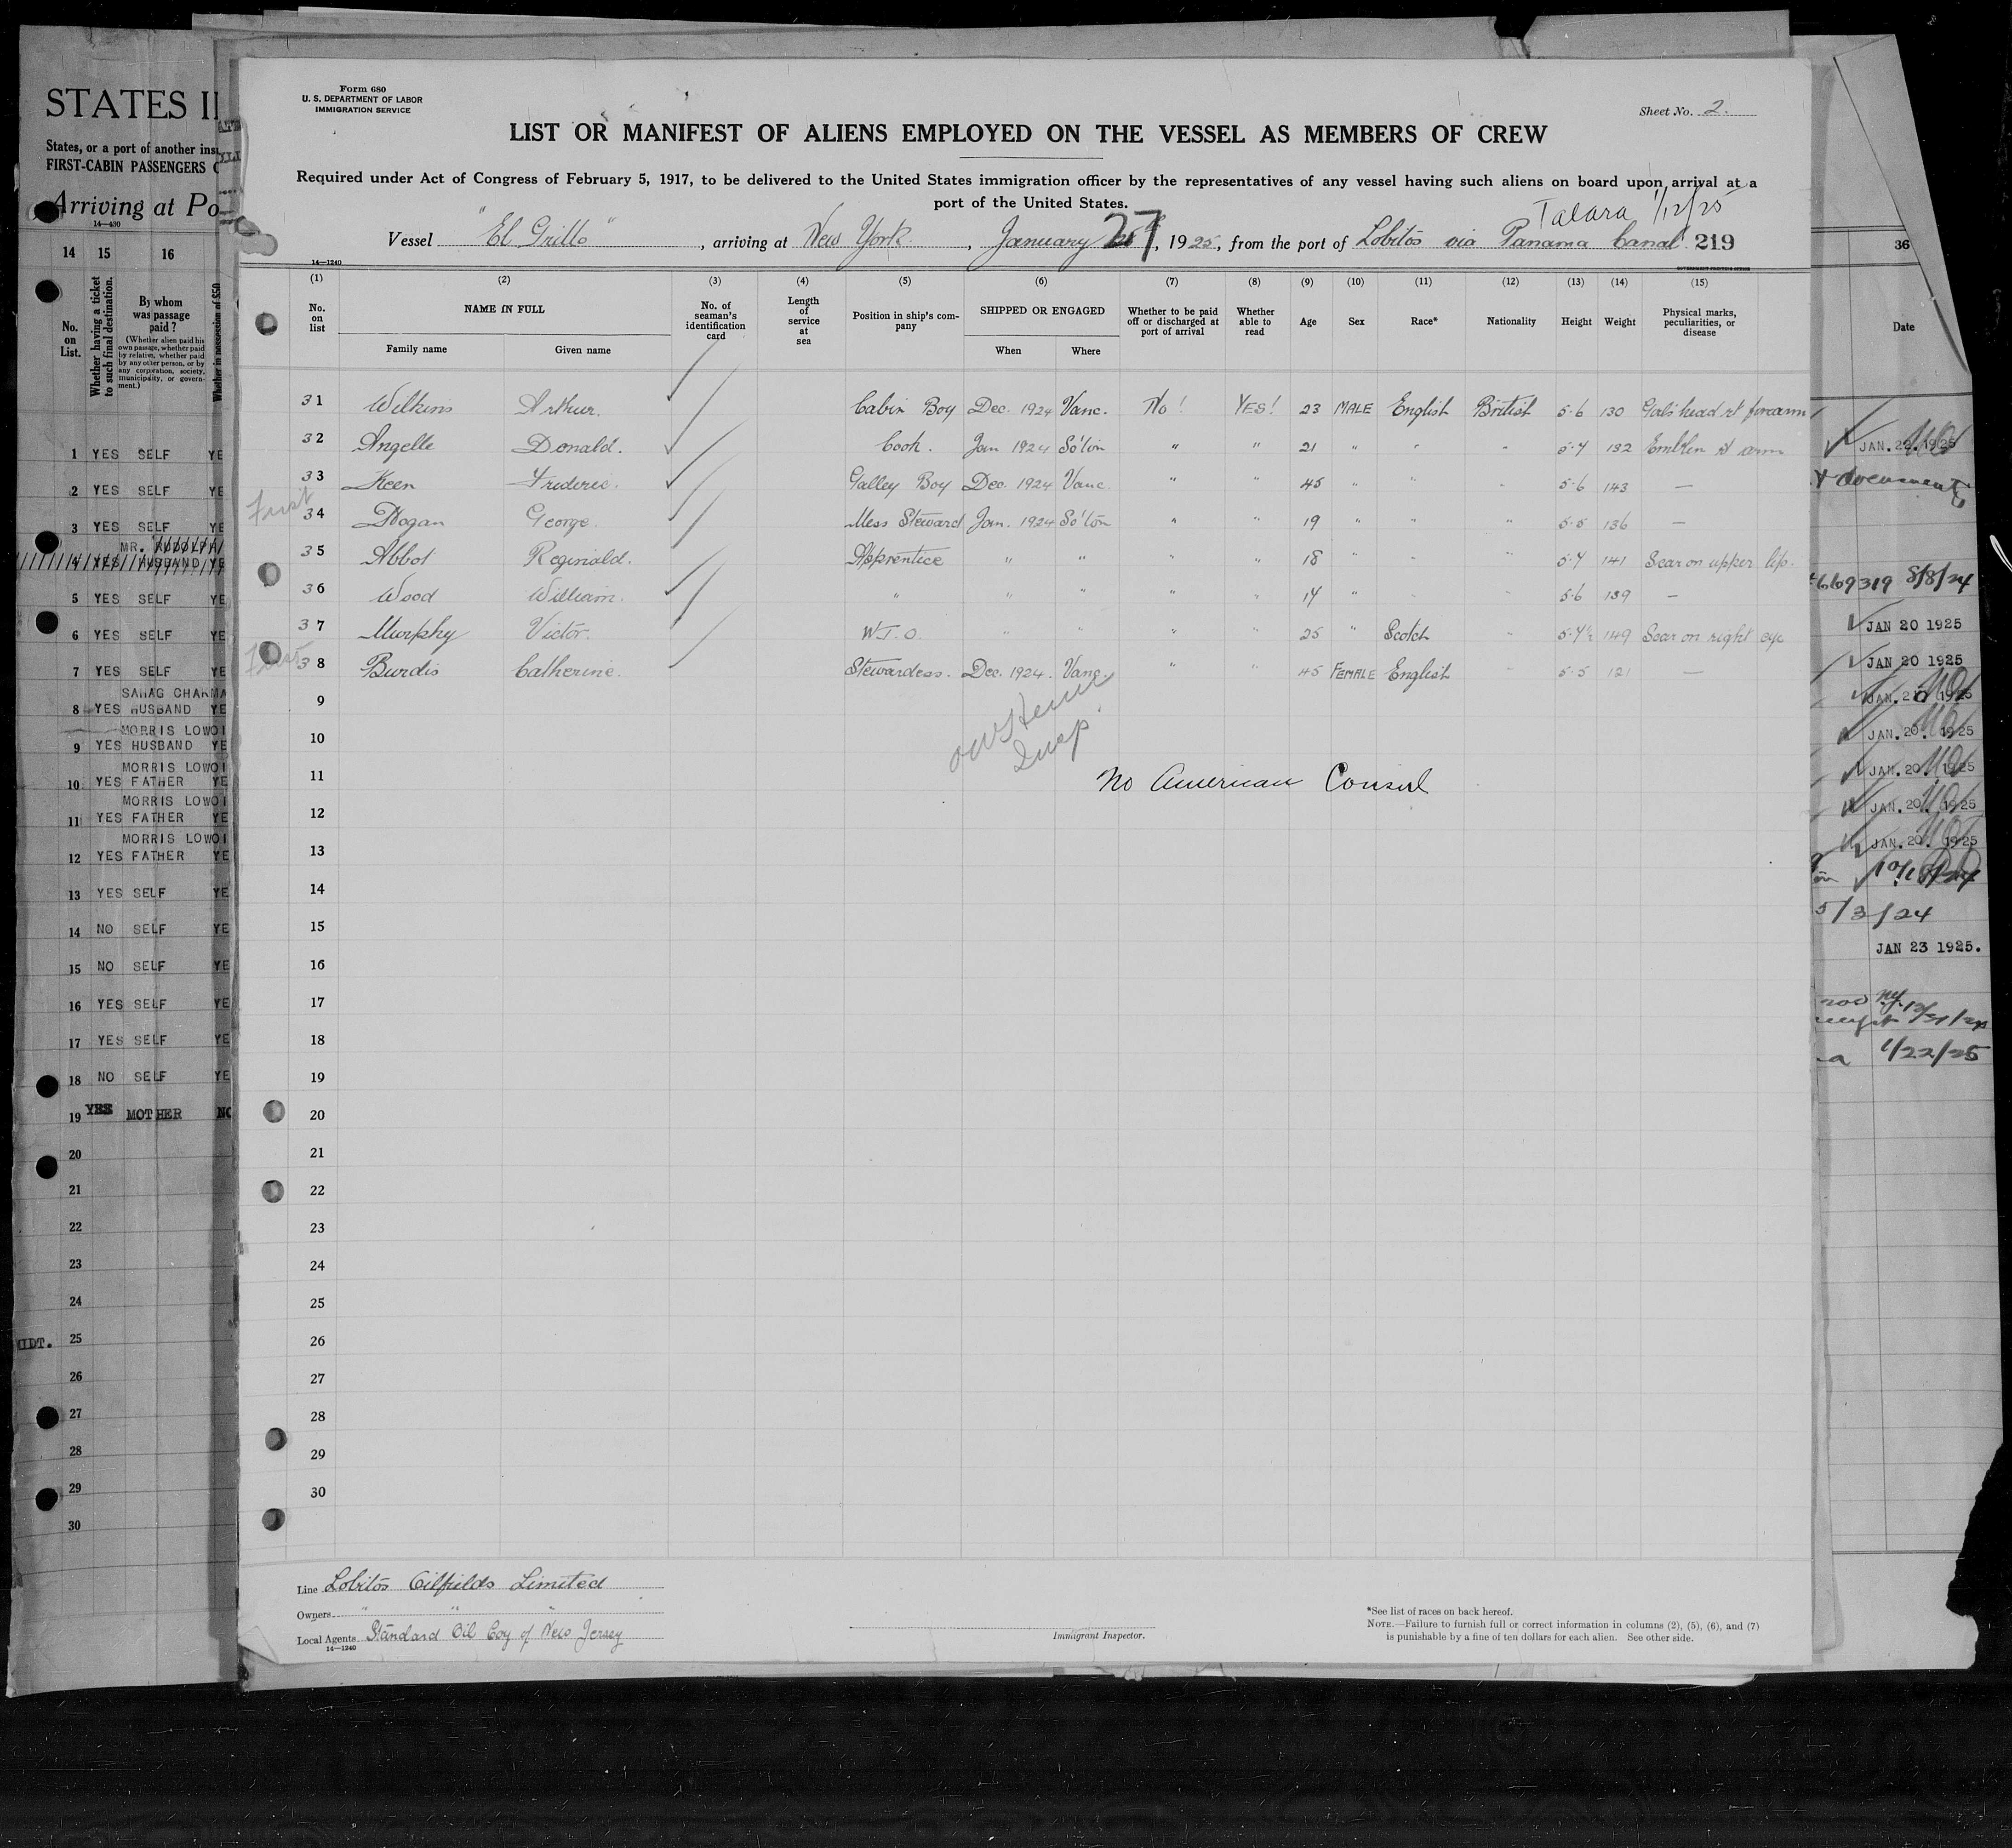 Form 680
U. S. DEPARTMENT OF LABOR
IMMIGRATION SERVICE
Sheet No. 2.
LIST OR MANIFEST OF ALIENS EMPLOYED ON THE VESSEL AS MEMBERS OF CREW
Required under Act of Congress of February 5, 1917, to be delivered to the United States immigration officer by the representatives of any vessel having such aliens on board upon arrival at a
port of the United States.
Talara 1/12/25
Vessel "El Grillo", arriving at New York, January 27, 1925, from the port of Lobitos via Panama Canal 219
14—1240
(1) (2) (3) (4) (5) (6) (7) (8) (9) (10) (11) (12) (13) (14) (15)
No. on list NAME IN FULL No. of seaman's identification card Length of service at sea Position in ship's company SHIPPED OR ENGAGED Whether to be paid off or discharged at port of arrival Whether able to read Age Sex Race* Nationality Height Weight Physical marks, peculiarities, or disease
Family name Given name When Where
31 Wilkins Arthur. Cabin Boy Dec. 1924 Vanc. No! YES! 23 MALE English British 5·6 130 head rt forearm
32 Angelle Donald. Cook. Jan 1924 So'ton " " 21 " " " 5·4 132 Emblem rt arm
33 Keen Frederic. Galley Boy Dec. 1924 Vanc. " " 45 " " " 5·6 143 —
34 Hogan George. Mess Steward Jan. 1924 So'ton " " 19 " " " 5·5 136 —
35 Abbot Reginald. Apprentice " " " " 18 " " " 5·7 141 Scar on upper lip.
36 Wood William. " " " " " " " " 5·6 139 —
37 Murphy Victor. W.T.O. " " " " 25 " Scotch " 149 Scar on right eye
38 Burdis Catherine. Stewardess. Dec. 1924. Vanc. " " 45 FEMALE English " 5·5 121 —
9
10
11 No American Consul
12
13
14
15
16
17
18
19
20
21
22
23
24
25
26
27
28
29
30
Line Lobitos Oilfields Limited
Owners " " "
Local Agents Standard Oil Coy of New Jersey
14—1240
Immigrant Inspector.
*See list of races on back hereof.
NOTE.—Failure to furnish full or correct information in columns (2), (5), (6), and (7)
is punishable by a fine of ten dollars for each alien. See other side.
STATES
States, or a port of another
FIRST-CABIN PASSENGERS
Arriving at Po
14—430
14 15 16
No. on List.
Whether having a ticket to such final destination.
By whom was passage paid?
(Whether alien paid his own passage, whether paid by relative, whether paid by any other person, or by any corporation, society, municipality, or government.)
Whether in possession of $50
1 YES SELF YE
2 YES SELF YE
3 YES SELF YE
MR. RUDOLPH
4 YES HUSBAND YE
5 YES SELF YE
6 YES SELF YE
7 YES SELF YE
8 YES HUSBAND YE
MORRIS LOWO
9 YES HUSBAND YE
MORRIS LOWO
10 YES FATHER YE
MORRIS LOWO
11 YES FATHER YE
MORRIS LOWO
12 YES FATHER YE
13 YES SELF YE
14 NO SELF YE
15 NO SELF YE
16 YES SELF YE
17 YES SELF YE
18 NO SELF YE
19 YES MOTHER NO
20
21
22
23
24
MIDT. 25
26
27
28
29
30
36
Date
JAN. 22. 1925
documents
669319 8/8/24
JAN 20 1925
JAN 20 1925
JAN. 20. 1925
JAN. 20. 1925
JAN. 20. 1925
JAN. 20. 1925
JAN. 20. 1925
5/3/24
JAN 23 1925.
1/22/25